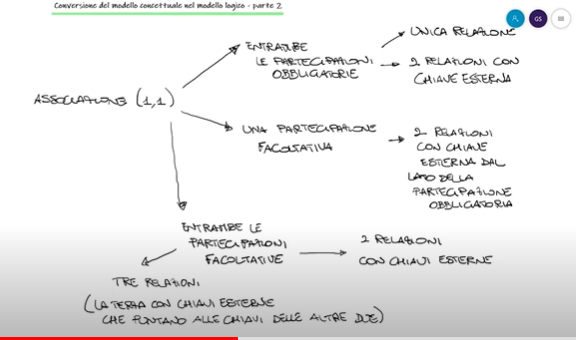 Conversione del modello concettuale nel modello logico - parte 2
GS
ASSOCIAZIONE (1,1)
ENTRAMBE
LE PARTECIPAZIONI
OBBLIGATORIE
UNICA RELAZIONE
2 RELAZIONI CON
CHIAVE ESTERNA
UNA PARTECIPAZIONE
FACOLTATIVA
2 RELAZIONI
CON CHIAVE
ESTERNA DAL
LATO DELLA
PARTECIPAZIONE
OBBLIGATORIA
ENTRAMBE LE
PARTECIPAZIONI
FACOLTATIVE
2 RELAZIONI
CON CHIAVI ESTERNE
TRE RELAZIONI
(LA TERZA CON CHIAVI ESTERNE
CHE PUNTANO ALLE CHIAVI DELLE ALTRE DUE)